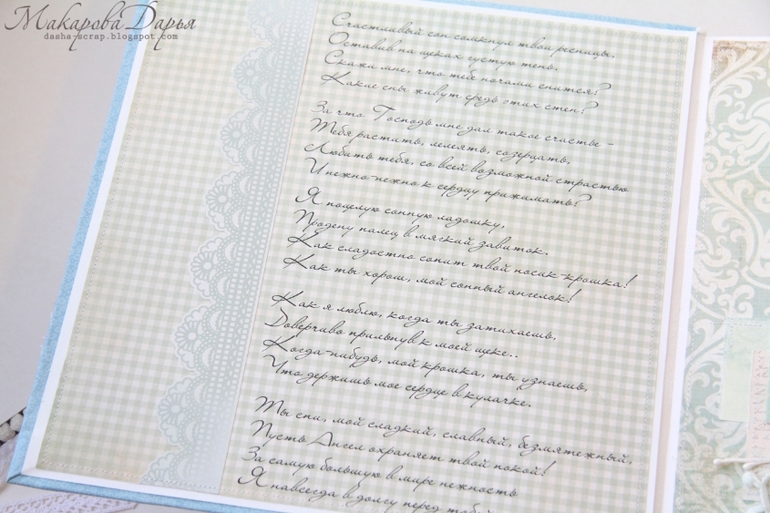 МакароваДарья
dasha-scrap.blogspot.com
Счастливый сон сомкнул твои ресницы.
Оставив на щеках густую тень.
Скажи мне, что тебе ночами снится?
Какие сны живут средь этих стен?
За что Господь мне дал такое счастье -
Тебя растить, лелеять, созерцать,
Любить тебя, со всей возможной страстью
И нежно-нежно к сердцу прижимать?
Я поцелую сонную ладошку,
Продену палец в мягкий завиток.
Как сладостно сопит твой носик-крошка!
Как ты хорош, мой сонный ангелок!
Как я люблю, когда ты затихаешь,
Доверчиво прильнув к моей щеке..
Когда-нибудь, мой крошка, ты узнаешь,
Что держишь мое сердце в кулачке.
Ты спи, мой сладкий, славный, безмятежный,
Пусть Ангел охраняет твой покой!
За самую большую в мире нежность
Я навсегда в долгу перед